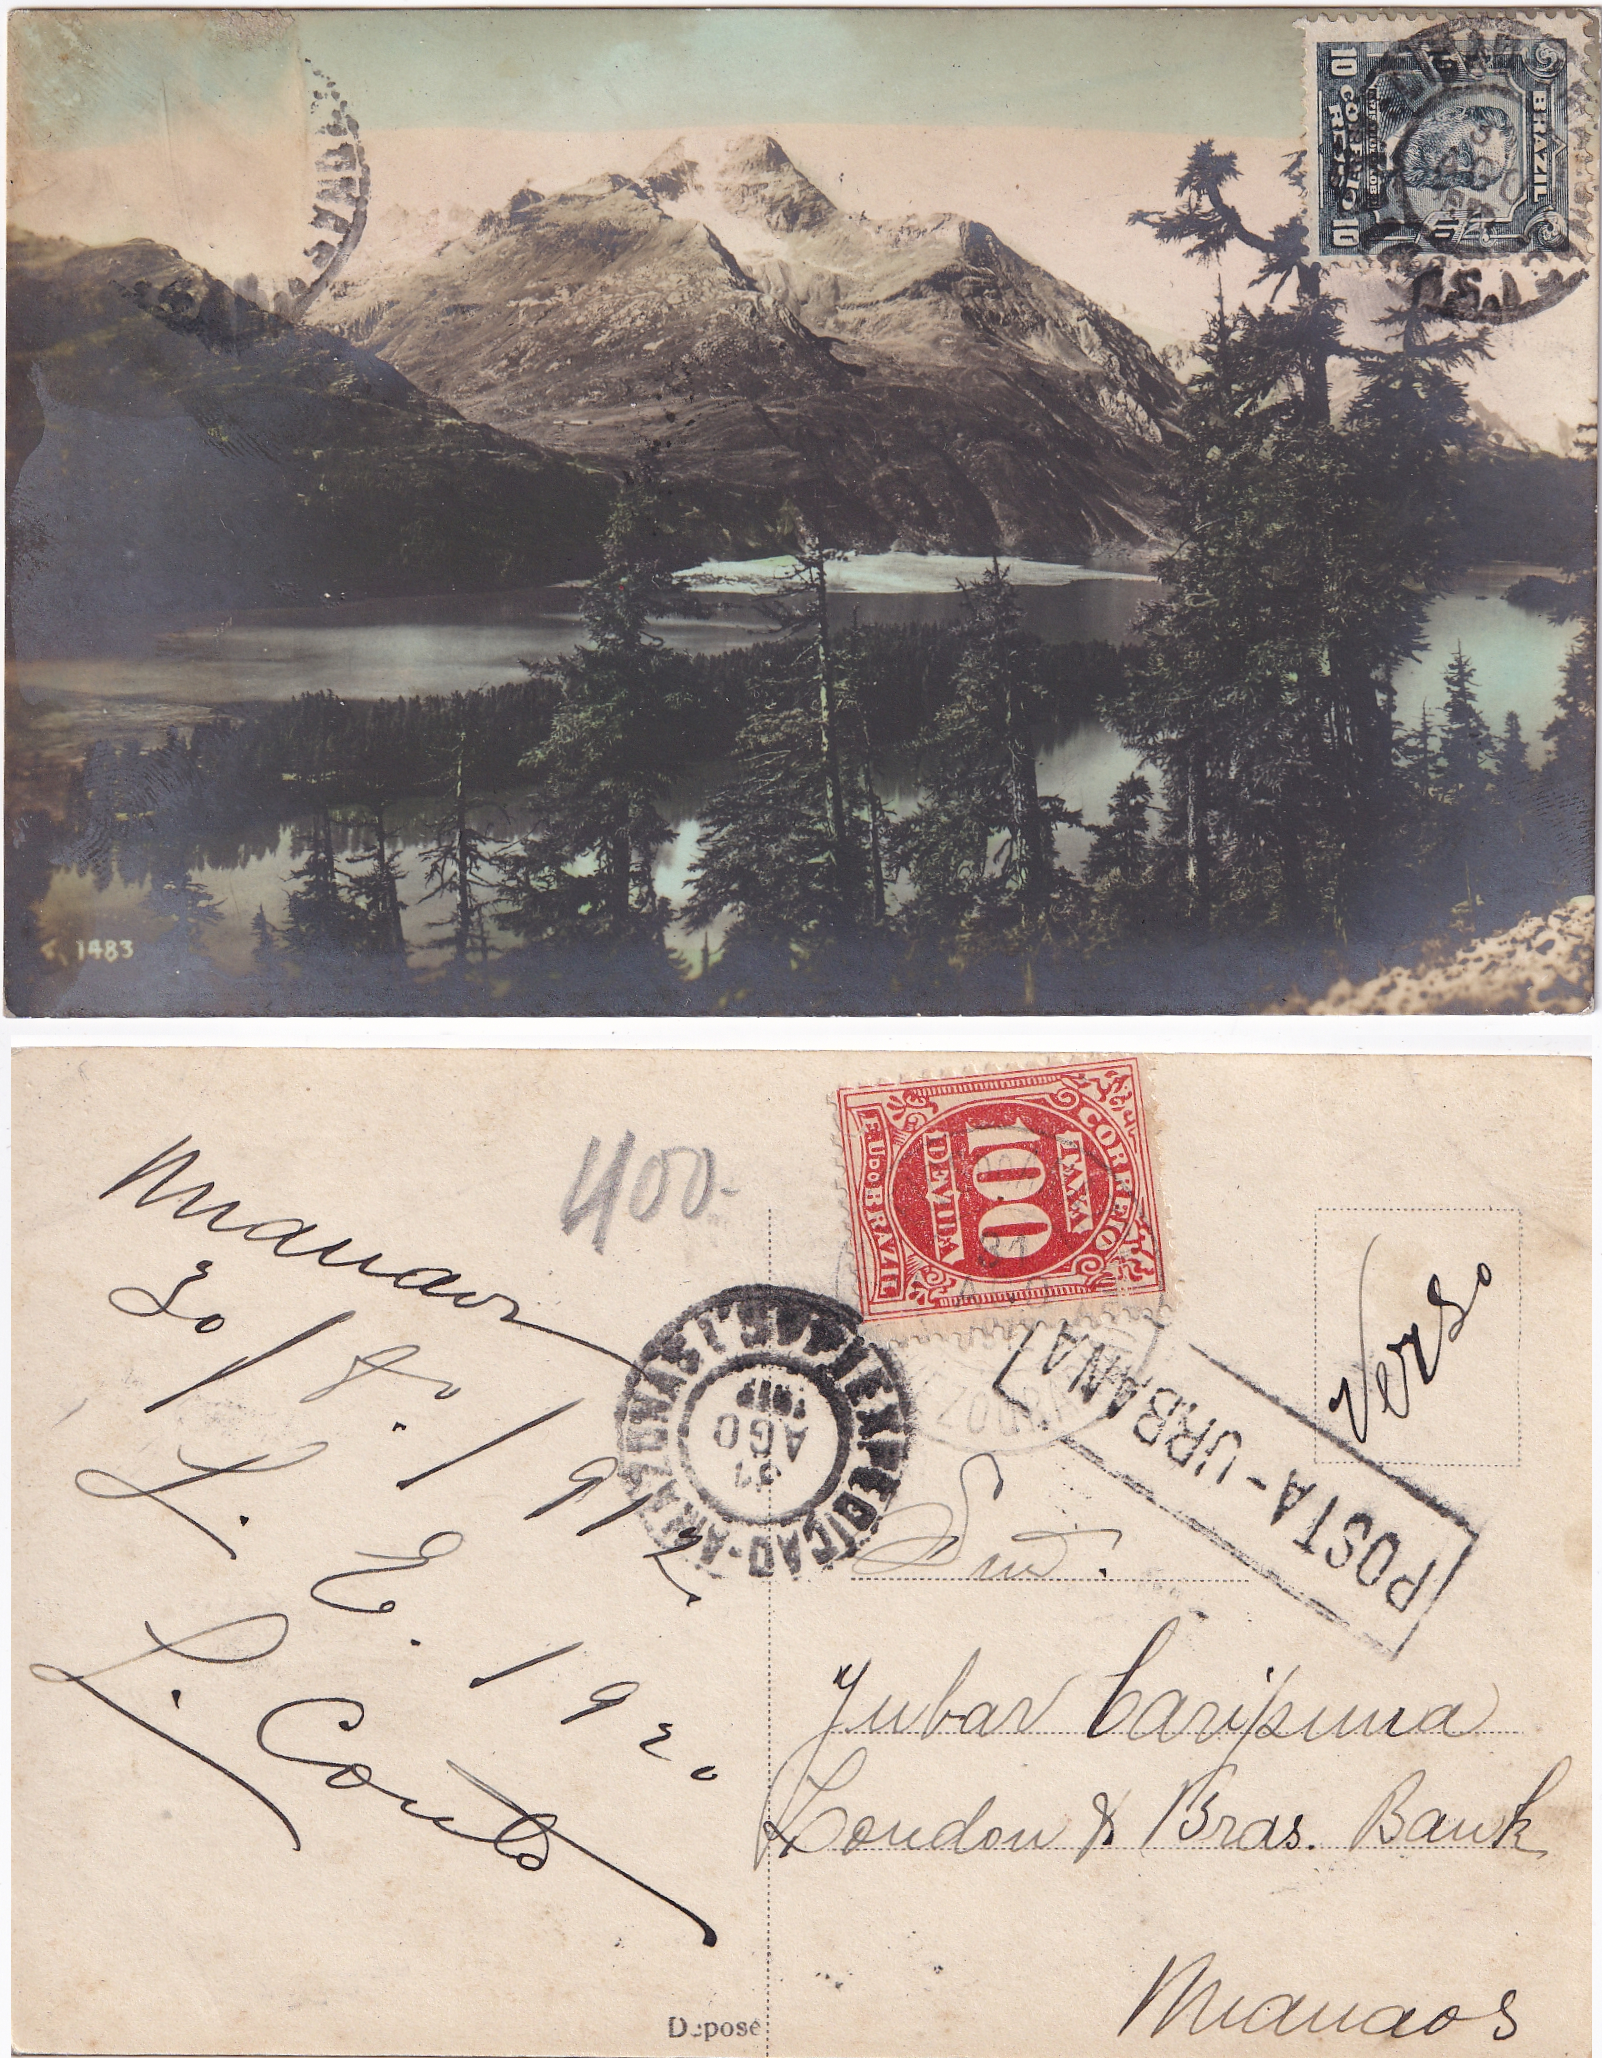 BRAZIL
10 CORREIO 10
REIS
1483
Manaos
30/8./1912
L. E. 1920
L. Couto
400-
CORREIO
TAXA
100
DEVIDA
E.U.DO BRAZIL
EXPEDIÇÃO
31
AGO
1912
POSTA-URBANA
Verso
Snr.
Jubar Caripuna
London & Bras. Bank
Manaos
Deposé